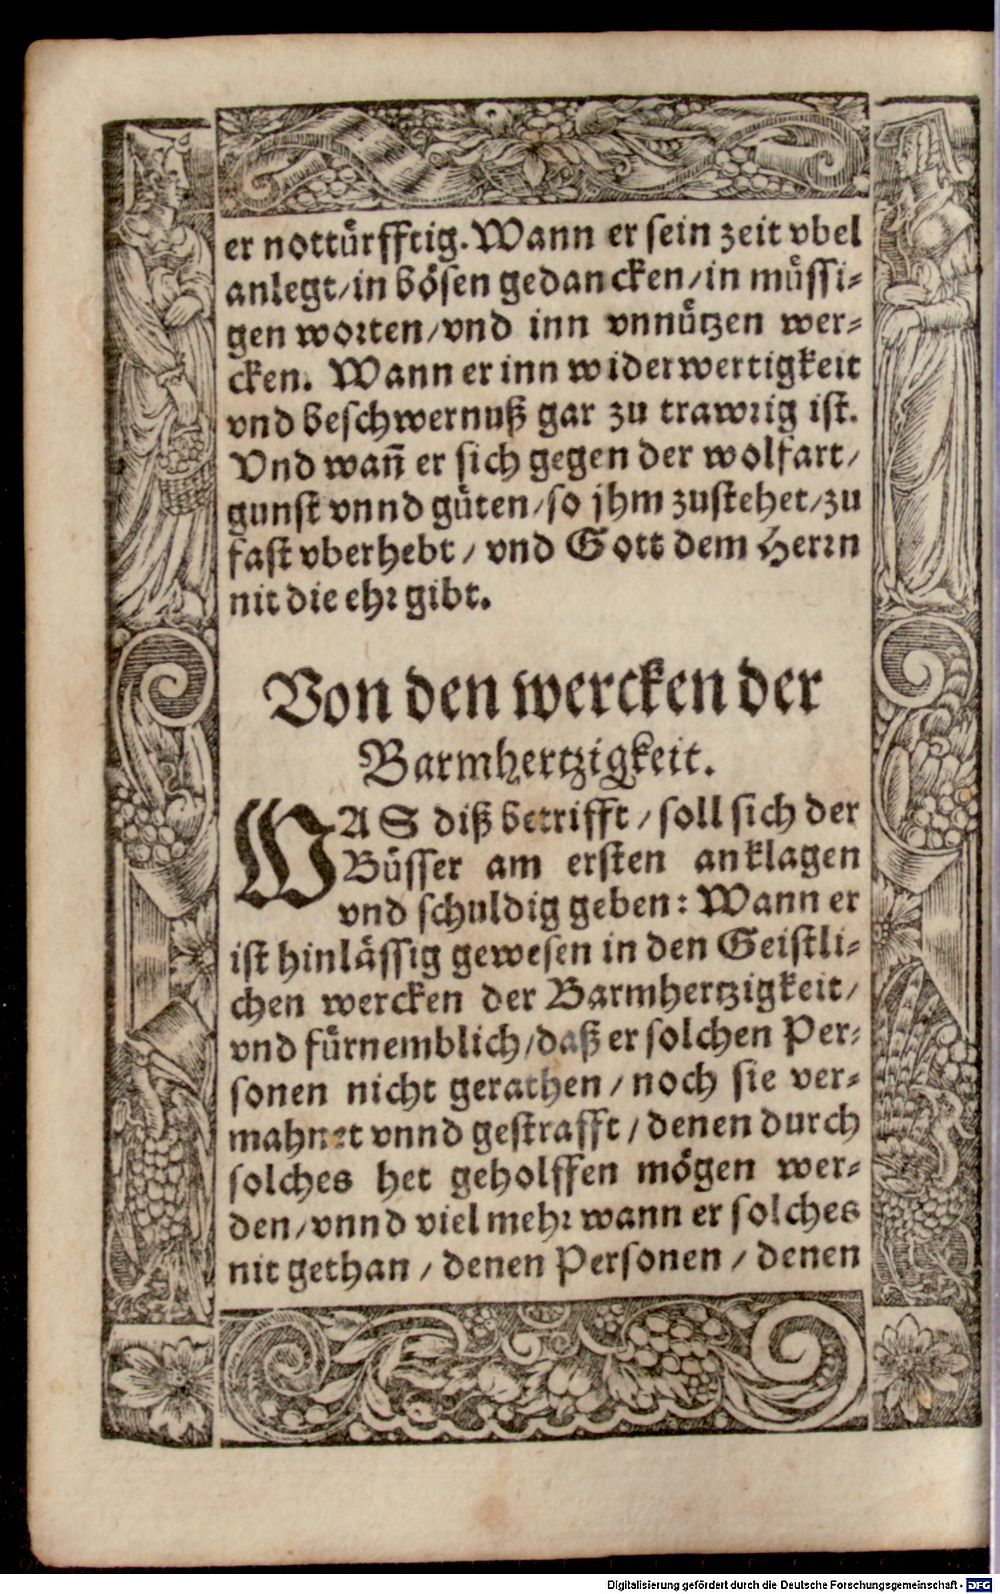 er nottürfftig. Wann er sein zeit vbel
anlegt/in bösen gedancken/in müssi⸗
gen worten/vnd inn vnnützen wer⸗
cken. Wann er inn widerwertigkeit
vnd beschwernuß gar zu trawrig ist.
Vnd wañ er sich gegen der wolfart/
gunst vnnd güten/so jhm zustehet/zu
fast vberhebt/ vnd Gott dem Herrn
nit die ehr gibt.
Von den wercken der
Barmhertzigkeit.
WAS diß betrifft/ soll sich der
Büsser am ersten anklagen
vnd schuldig geben: Wann er
ist hinlässig gewesen in den Geistli⸗
chen wercken der Barmhertzigkeit/
vnd fürnemblich/daß er solchen Per⸗
sonen nicht gerathen/noch sie ver⸗
mahnet vnnd gestrafft/denen durch
solches het geholffen mögen wer⸗
den/vnnd viel mehr wann er solches
nit gethan/ denen Personen/ denen
Digitalisierung gefördert durch die Deutsche Forschungsgemeinschaft - DFG